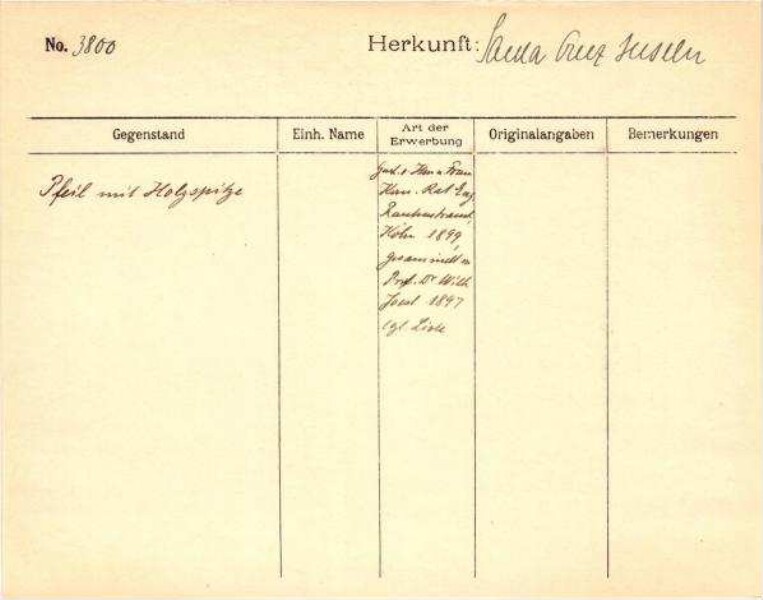 No. 3800
Herkunft: Santa Cruz Inseln
Gegenstand
Einh. Name
Art der
Erwerbung
Originalangaben
Bemerkungen
Pfeil mit Holzspitze
Gesch. v. Herrn u. Frau
Kom. Rat Eug.
Rautenstrauch,
Köln 1899,
gesammelt v.
Prof. Dr Wilh.
Joest 1897
cgl Liste